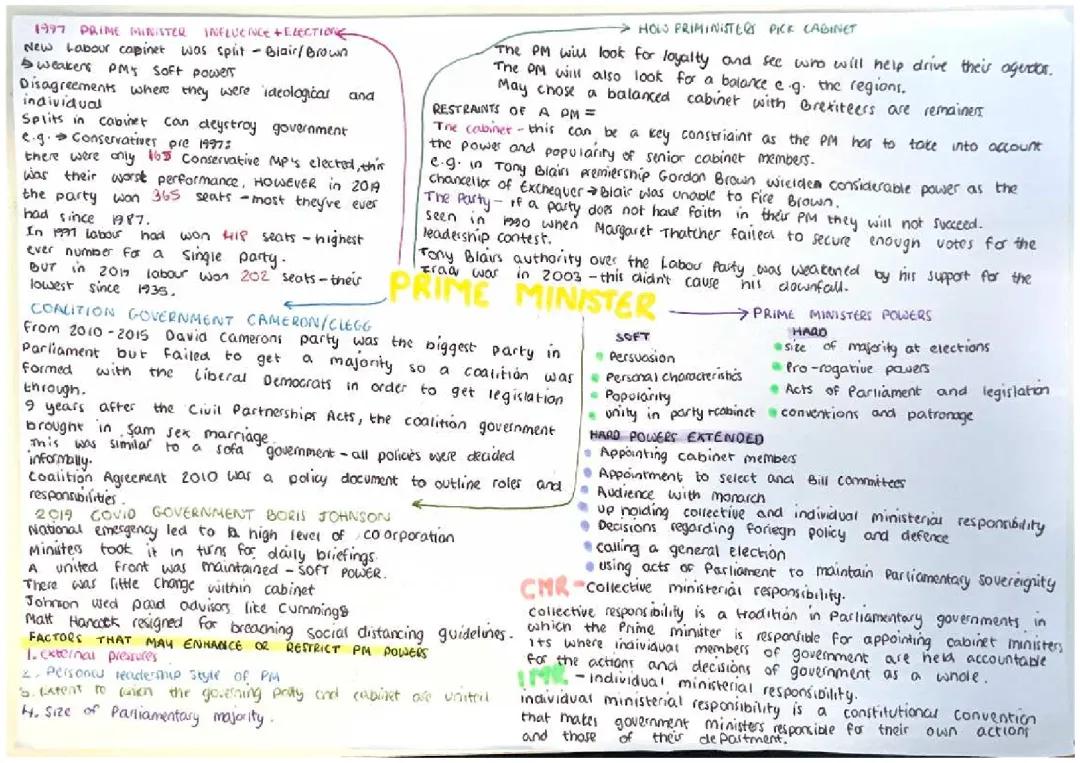 1997 PRIME MINISTER INFLUENCE + ELECTION
New Labour cabinet was split - Blair/Brown
↳ weakens PM's soft powers
Disagreements where they were ideological and
individual
Splits in cabinet can deystroy government
e.g. → Conservatives pre 1997:
there were only 165 Conservative MP's elected, this
was their worst performance, HOWEVER in 2019
the party won 365 seats - most they've ever
had since 1987.
In 1997 labour had won 418 seats - highest
ever number for a single party.
BUT in 2019 labour won 202 seats - their
lowest since 1935.
COALITION GOVERNMENT CAMERON/CLEGG
From 2010-2015 David Camerons party was the biggest party in
Parliament but failed to get a majority so a coalition was
formed with the Liberal Democrats in order to get legislation
through.
9 years after the Civil Partnerships Acts, the coalition government
brought in sam sex marriage
This was similar to a sofa government - all policies were decided
informally.
Coalition Agreement 2010 was a policy document to outline roles and
responsibilities.
2019 COVID GOVERNMENT BORIS JOHNSON
National emergency led to a high level of coorporation
Ministers took it in turns for daily briefings
A united front was maintained - SOFT POWER.
There was little change within cabinet
Johnson used paid advisors like Cummings
Matt Hancock resigned for breaching social distancing guidelines.
FACTORS THAT MAY ENHANCE OR RESTRICT PM POWERS
1. External pressures
2. Personal leadership style of PM
3. Extent to which the governing party and cabinet are
4. Size of Parliamentary majority.
HOW PRIMINISTERS PICK CABINET
The PM will look for loyalty and see who will help drive their agendas.
The PM will also look for a balance e.g. the regions.
May chose a balanced cabinet with Brexiteers are remainers
RESTRAINTS OF A PM =
The cabinet - this can be a key constriaint as the PM has to take into account
the power and popularity of senior cabinet members.
e.g. in Tony Blairs premiership Gordon Brown wielded considerable power as the
chancellor of Exchequer → Blair was unable to fire Brown.
The Party - if a party does not have faith in their PM they will not succeed.
Seen in 1990 when Margaret Thatcher failed to secure enough votes for the
leadership contest.
Tony Blairs authority over the Labour Party was weakened by his support for the
Iraq war in 2003 - this didn't cause his downfall.
PRIME MINISTER
PRIME MINISTERS POWERS
SOFT
Persuasion
Personal characteristics
Popularity
unity in party + cabinet
HARD
size of majority at elections
Pro-rogative powers
Acts of Parliament and legislation
conventions and patronage
HARD POWERS EXTENDED
Appointing cabinet members
Appointment to select and Bill committees
Audience with monarch
Up holding collective and individual ministerial responsibility
Decisions regarding foriegn policy and defence
calling a general election
using acts of Parliament to maintain Parliamentary sovereignity
CMR - Collective ministerial responsibility.
collective responsibility is a tradition in Parliamentary governments in
which the Prime minister is responsible for appointing cabinet ministers
Its where individual members of government are held accountable
for the actions and decisions of government as a whole.
IMR - individual ministerial responsibility.
individual ministerial responsibility is a constitutional convention
that makes government ministers responsible for their own actions
and those of their department.